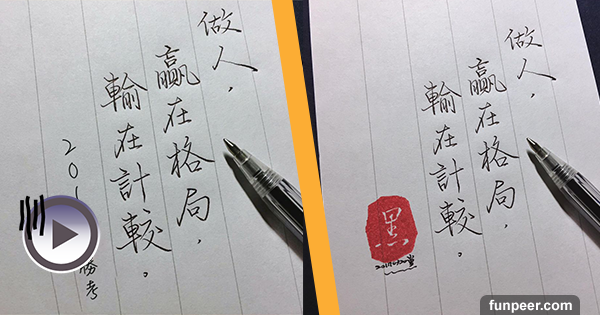 做人，
贏在格局，
輸在計較。
201
勝考
做人，
贏在格局，
輸在計較。
黑
funpeer.com